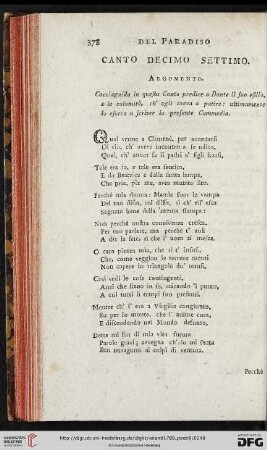 378 DEL PARADISO
CANTO DECIMO SETTIMO.
ARGOMENTO.
Cacciaguida in questo Canto predice a Dante il suo esilio,
e le calamità, ch' egli aveva a patire: ultimamente
lo esorta a scriver la presente Commedia.
Qual venne a Climenè, per accertarsi
Di ciò, ch' aveva incontro a se udito,
Quei, ch' ancor fa li padri a' figli scarsi,
Tale era io, e tale era sentito,
E da Beatrice e dalla santa lampa,
Che pria, per me, avea mutato sito.
Perchè mia donna: Manda fuor la vampa
Del tuo disio, mi disse, sì ch' ell' esca
Segnata bene della 'nterna stampa:
Non perchè nostra conoscenza cresca,
Per tuo parlare, ma perchè t' ausi
A dir la sete, sì che l' uom ti mesca.
O cara pianta mia, che sì t' insusi,
Che, come veggion le terrene menti
Non capere in triangolo du' ottusi,
Così vedi le cose contingenti,
Anzi che sieno in se, mirando 'l punto,
A cui tutti li tempi son presenti.
Mentre ch' i' era a Virgilio congiunto,
Su per lo monte, che l' anime cura,
E discendendo nel Mondo defunto,
Dette mi fur di mia vita futura
Parole gravi; avvegna ch', io mi senta
Ben tetragono ai colpi di ventura.
Perchè
http://digi.ub.uni-heidelberg.de/diglit/valenti1788_poesie
UNIVERSITÄTS-
BIBLIOTHEK
HEIDELBERG
© Universitätsbibliothek Heidelberg
gefördert durch die
DFG